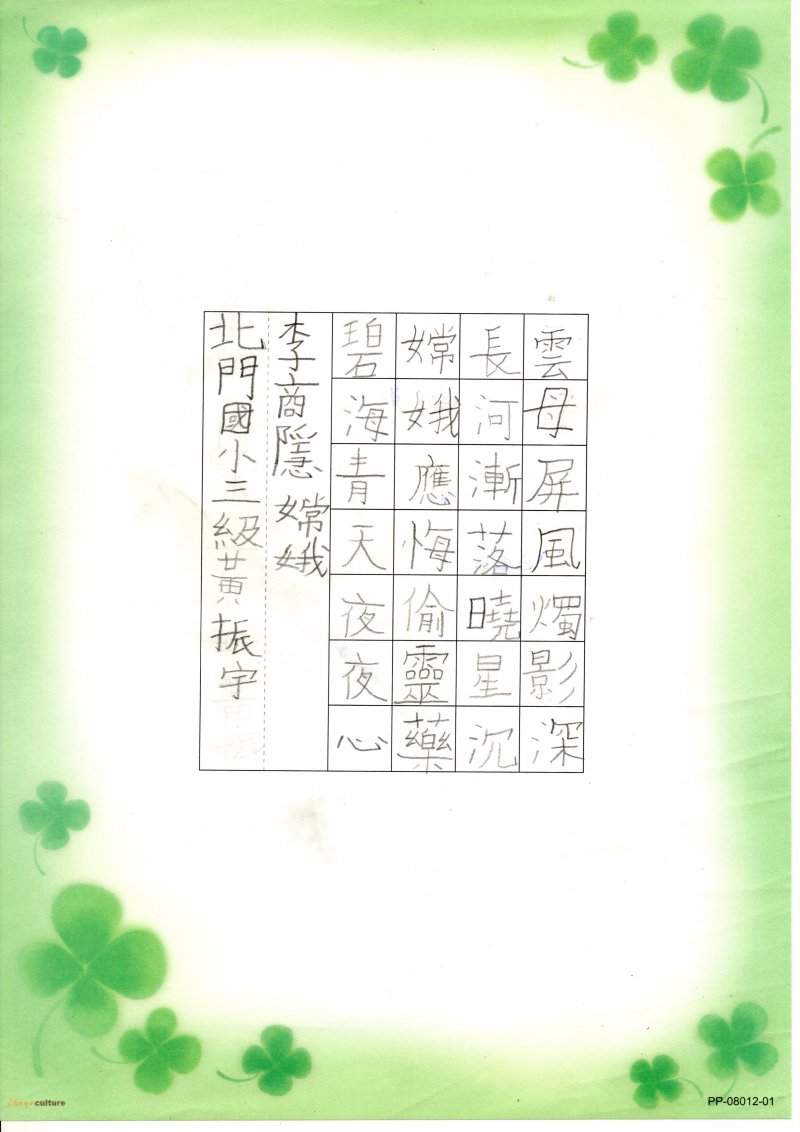 雲母屏風燭影深
長河漸落曉星沉
嫦娥應悔偷靈藥
碧海青天夜夜心
李商隱 嫦娥
北門國小三級黃振宇
culture
PP-08012-01